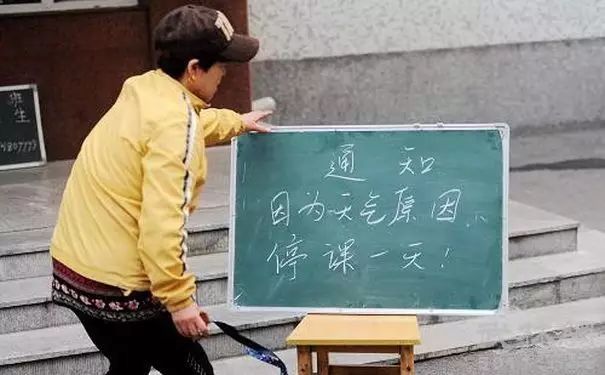 班
生
通知
因为天气原因
停课一天！